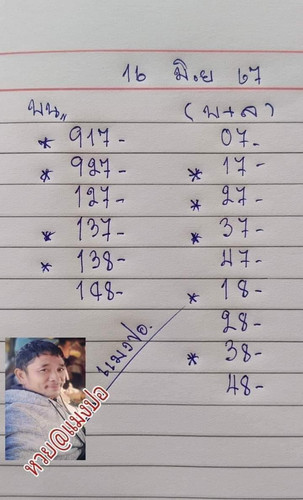 16 มิ.ย 67
บน,, (บ+ล)
* 917- 07-
* 927- * 17-
127- * 27-
* 137- * 37-
* 138- 47-
148- * 18-
28-
* 38-
48-
แมงปอ.
หวย@แมงปอ